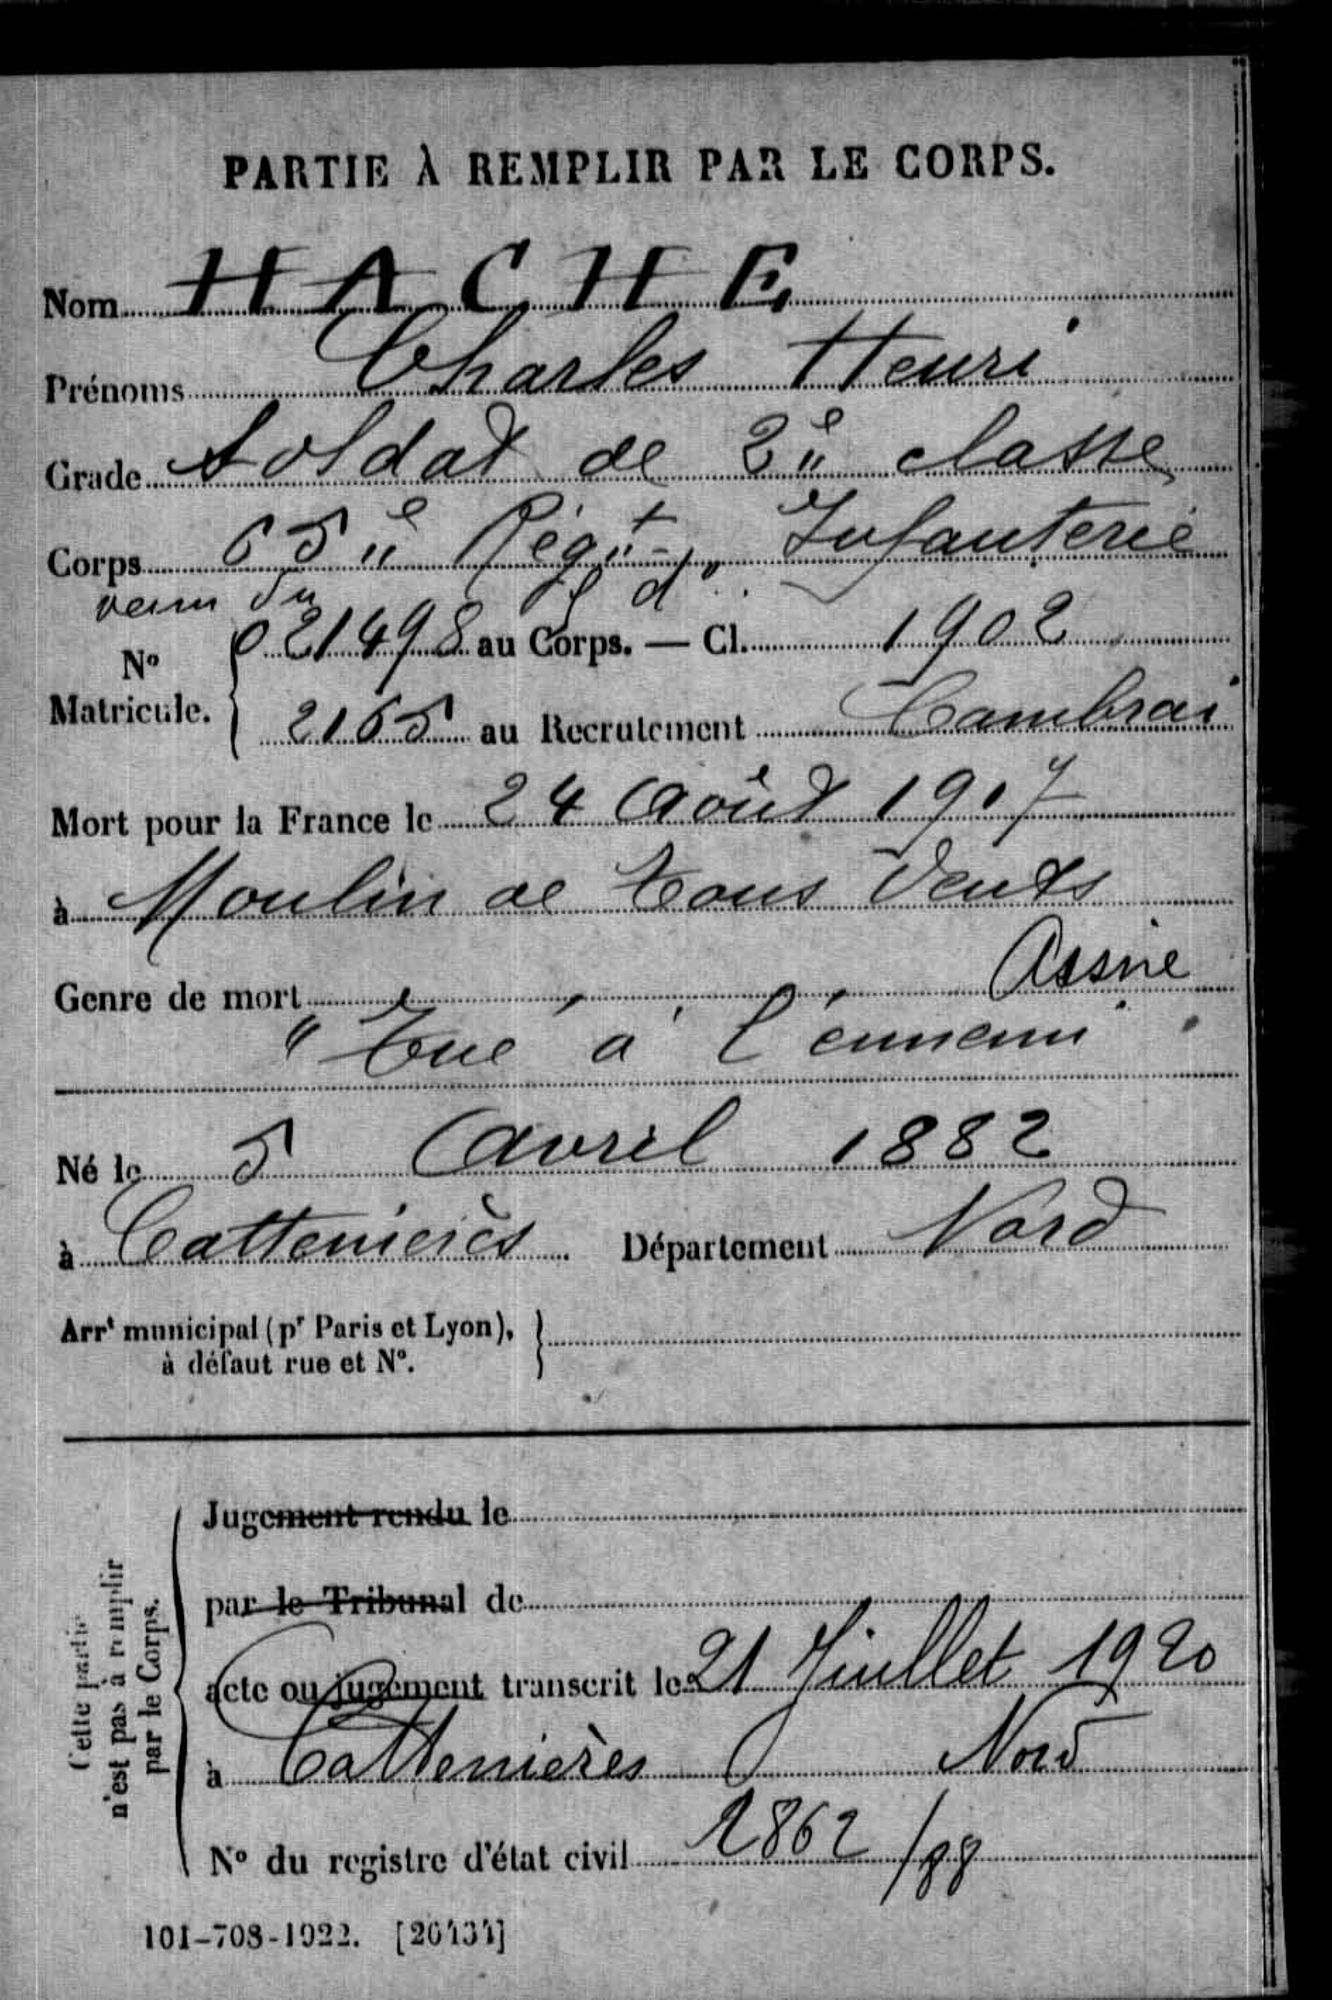 PARTIE À REMPLIR PAR LE CORPS.
Nom HACHE
Prénoms Charles Henri
Grade Soldat de 2e classe
Corps 65e Régt Infanterie
venu du d°
N° Matricule. 021498 au Corps. — Cl. 1902
2165 au Recrutement Cambrai
Mort pour la France le 24 août 1917
à Moulin de tous Vents
Aisne
Genre de mort
"Tué à l'ennemi"
Né le 5 avril 1882
à Cattenières Département Nord
Arrt municipal (pr Paris et Lyon),
à défaut rue et N°.
Cette partie
n'est pas à remplir
par le Corps.
Jugement rendu le
par le Tribunal de
acte ou jugement transcrit le 21 Juillet 1920
à Cattenières Nord
N° du registre d'état civil 1862/88
101-708-1922. [26434]